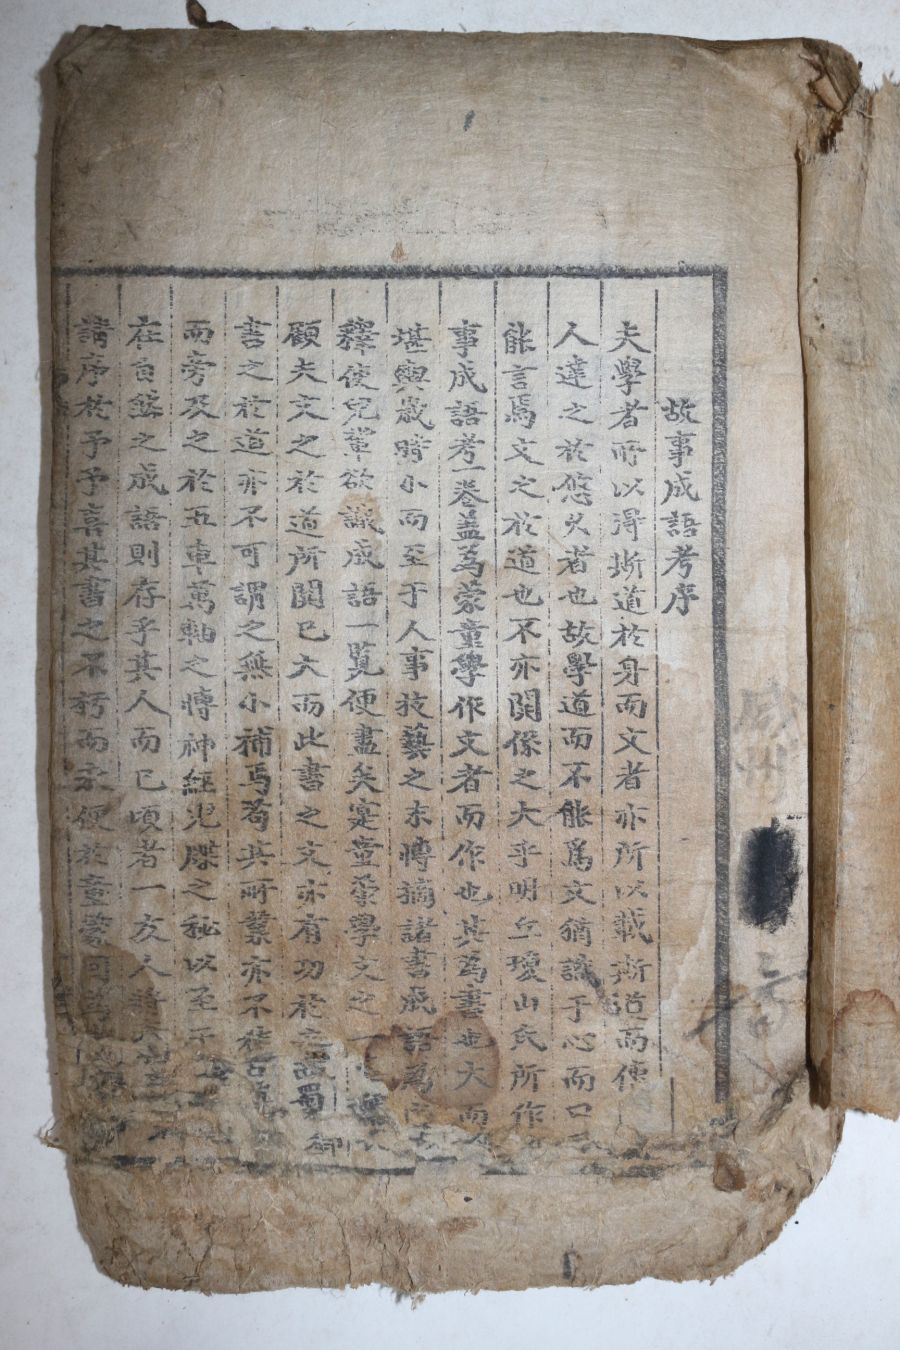 故事成語考序
夫學者所以淂斯道於身而文者亦所以載斯道而傳
人達之於悠久者也故學道而不能爲文猶識于心而口
能言焉文之於道也不亦関係之大乎明丘瓊山氏所作
事成語考一巻盖爲蒙童學作文者而作也其爲書也大而
堪輿歲時小而至于人事技藝之末博摘諸書成語爲之
釋使兒輩欲識成語一覧便盡矣寔童蒙學文之
顧夫文之於道所関已大而此書之文亦有功於之
書之於道亦不可謂之無小補焉苟其所業亦不在
而旁及之於五車萬軸之博神經児牒之秘以至于
在自然之成語則存乎其人而已頃者一友人
請序於予予喜其書之不朽而永便於童蒙